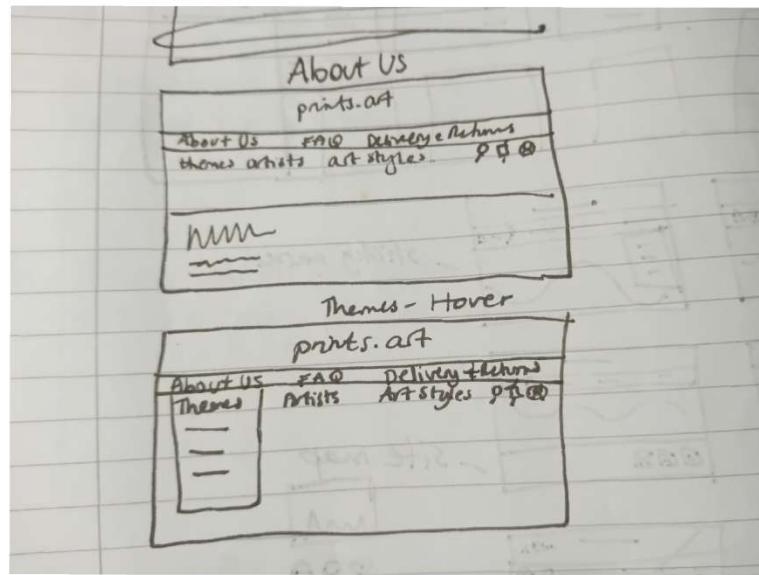 About Us
prints.art
About Us FAQ Delivery & Returns
themes artists art styles
Themes - Hover
prints.art
About Us FAQ Delivery + Returns
Themes Artists Art Styles